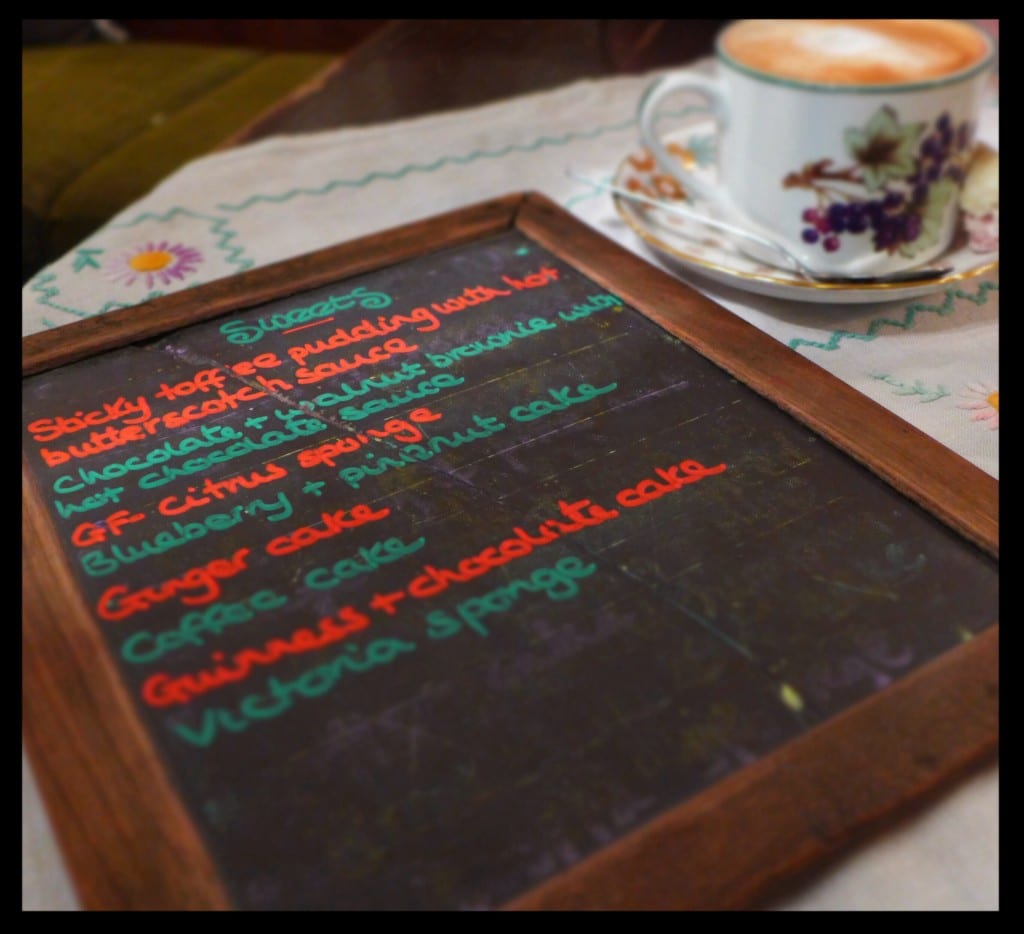 Sweets
Sticky toffee pudding with hot
butterscotch sauce
Chocolate + walnut brownie with
hot chocolate sauce
GF- citrus sponge
Blueberry + pinenut cake
Ginger cake
Coffee cake
Guinness + chocolate cake
Victoria sponge